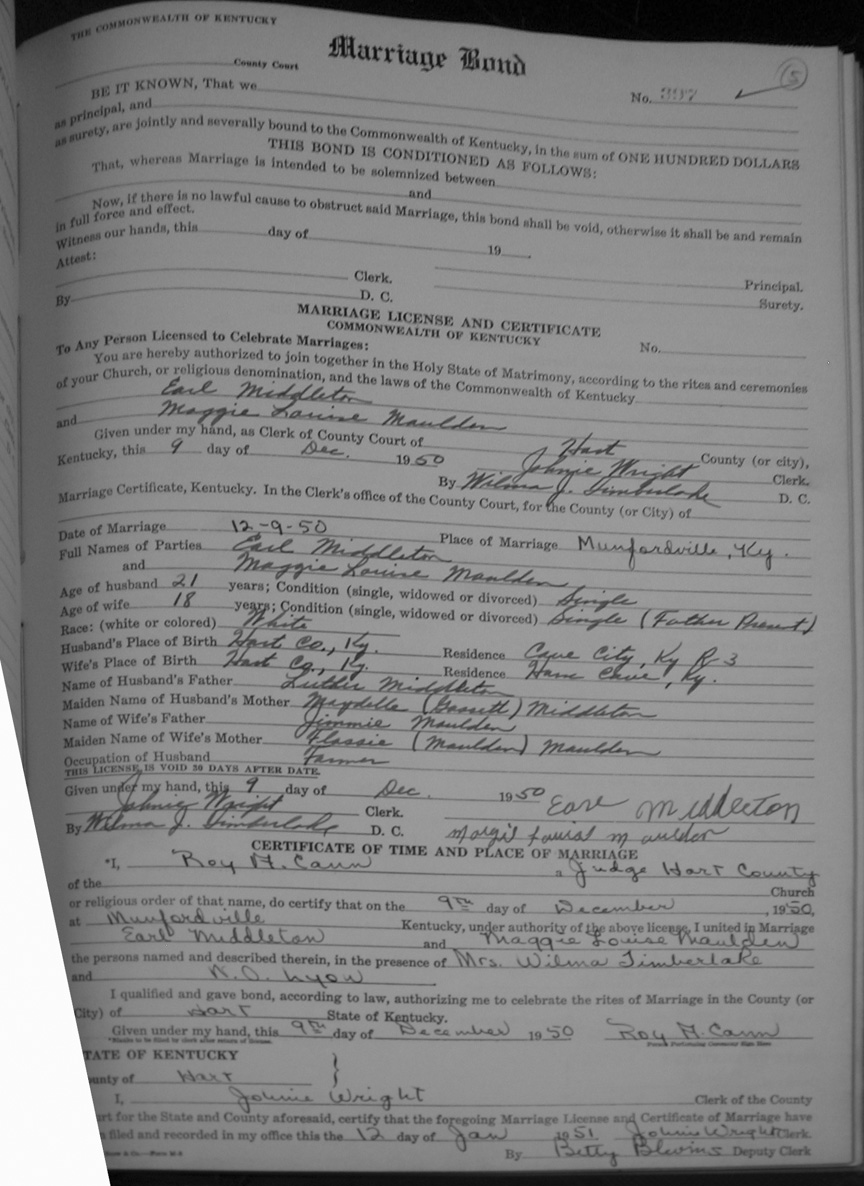 THE COMMONWEALTH OF KENTUCKY
Marriage Bond
County Court
No. 397
5
BE IT KNOWN, That we
as principal, and
as surety, are jointly and severally bound to the Commonwealth of Kentucky, in the sum of ONE HUNDRED DOLLARS
THIS BOND IS CONDITIONED AS FOLLOWS:
That, whereas Marriage is intended to be solemnized between
and
Now, if there is no lawful cause to obstruct said Marriage, this bond shall be void, otherwise it shall be and remain
in full force and effect.
Witness our hands, this day of 19
Attest:
Clerk. Principal.
By D. C. Surety.
MARRIAGE LICENSE AND CERTIFICATE
COMMONWEALTH OF KENTUCKY
To Any Person Licensed to Celebrate Marriages: No.
You are hereby authorized to join together in the Holy State of Matrimony, according to the rites and ceremonies
of your Church, or religious denomination, and the laws of the Commonwealth of Kentucky
Earl Middleton
and Maggie Louise Maulden
Given under my hand, as Clerk of County Court of Hart County (or city),
Kentucky, this 9 day of Dec. 1950 Johnie Wright Clerk.
By Wilma J. Timberlake D. C.
Marriage Certificate, Kentucky. In the Clerk's office of the County Court, for the County (or City) of
Date of Marriage 12-9-50 Place of Marriage Munfordville, Ky.
Full Names of Parties Earl Middleton
and Maggie Louise Maulden
Age of husband 21 years; Condition (single, widowed or divorced) Single
Age of wife 18 years; Condition (single, widowed or divorced) Single (Father Present)
Race: (white or colored) White
Husband's Place of Birth Hart Co., Ky. Residence Cave City, Ky R-3
Wife's Place of Birth Hart Co., Ky. Residence Horse Cave, Ky.
Name of Husband's Father Luther Middleton
Maiden Name of Husband's Mother Maydelle (Gossett) Middleton
Name of Wife's Father Jimmie Maulden
Maiden Name of Wife's Mother Flossie (Maulden) Maulden
Occupation of Husband Farmer
THIS LICENSE IS VOID 30 DAYS AFTER DATE.
Given under my hand, this 9 day of Dec. 1950 Earl Middleton
Johnie Wright Clerk.
By Wilma J. Timberlake D. C. Maulden
CERTIFICATE OF TIME AND PLACE OF MARRIAGE
*I, Roy A. Cann a Judge Hart County
of the Church
or religious order of that name, do certify that on the 9th day of December, 1950,
at Munfordville Kentucky, under authority of the above license, I united in Marriage
Earl Middleton and Maggie Louise Maulden
the persons named and described therein, in the presence of Mrs. Wilma Timberlake
and Lyon
I qualified and gave bond, according to law, authorizing me to celebrate the rites of Marriage in the County (or
City) of Hart State of Kentucky.
Given under my hand, this 9th day of December 1950 Roy A. Cann
TATE OF KENTUCKY
unty of Hart
I, Johnie Wright Clerk of the County
urt for the State and County aforesaid, certify that the foregoing Marriage License and Certificate of Marriage have
filed and recorded in my office this the 12 day of Jan 1951. Johnie Wright Clerk.
By Betty Blevins Deputy Clerk